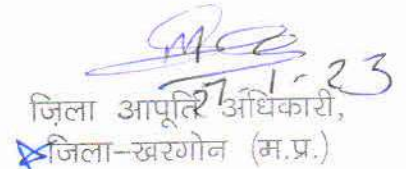 27-1-23
जिला आपूर्ति अधिकारी,
जिला-खरगोन (म.प्र.)